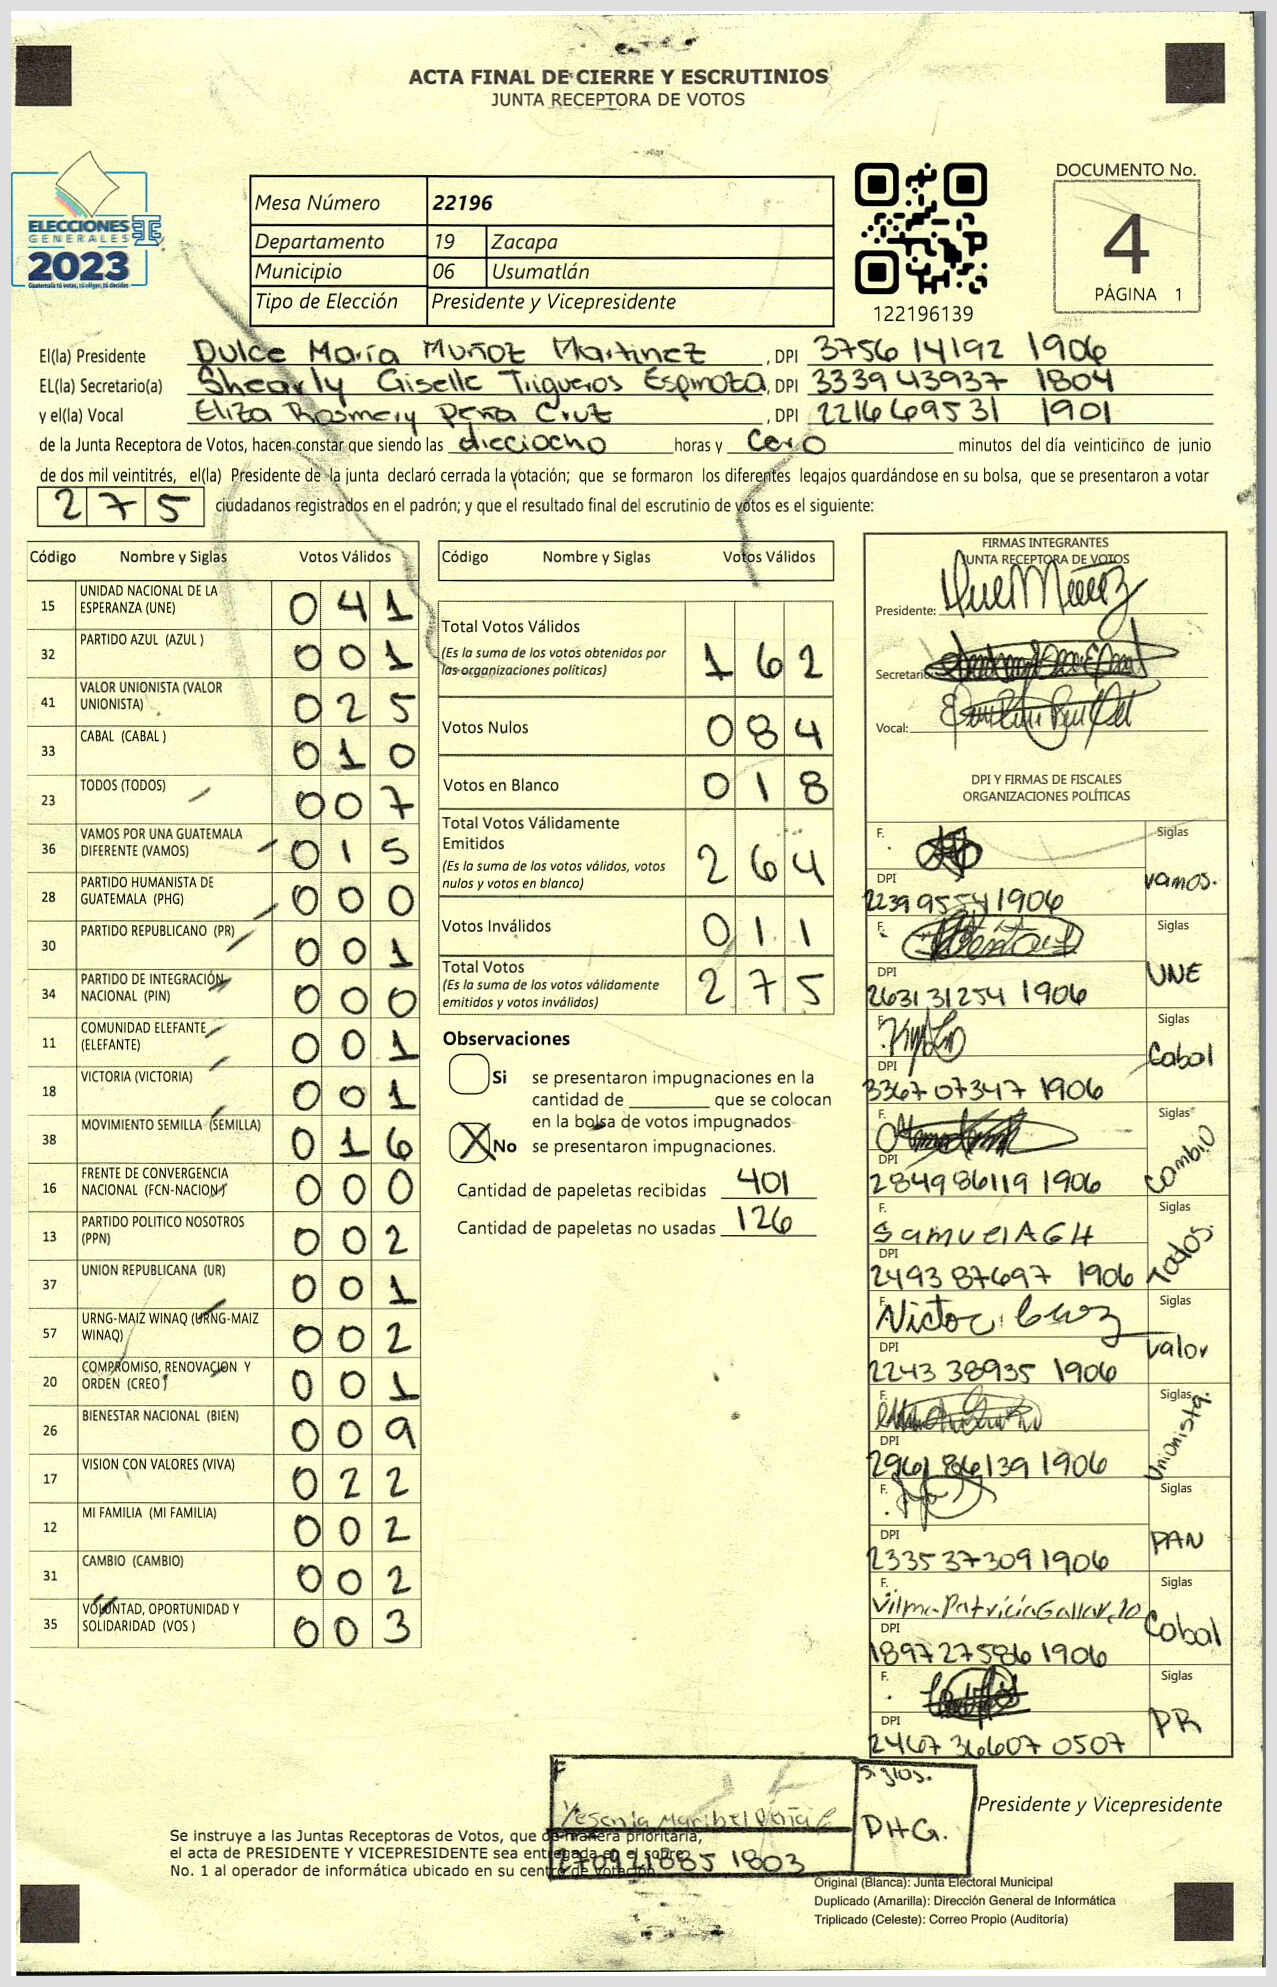 ACTA FINAL DE CIERRE Y ESCRUTINIOS
JUNTA RECEPTORA DE VOTOS
ELECCIONES
GENERALES
2023
Guatemala tú votas, tú eliges, tú decides
Mesa Número 22196
Departamento 19 Zacapa
Municipio 06 Usumatlán
Tipo de Elección Presidente y Vicepresidente
122196139
DOCUMENTO No.
4
PÁGINA 1
El(la) Presidente Dulce María Muñoz Martinez, DPI 3756 14192 1906
EL(la) Secretario(a) Shearly Giselle Trigueros Espinoza, DPI 3339 43937 1804
y el(la) Vocal Eliza Rosmery Peña Cruz, DPI 2216 69531 1901
de la Junta Receptora de Votos, hacen constar que siendo las dieciocho horas y cero minutos del día veinticinco de junio
de dos mil veintitrés, el(la) Presidente de la junta declaró cerrada la votación; que se formaron los diferentes legajos quardándose en su bolsa, que se presentaron a votar
275 ciudadanos registrados en el padrón; y que el resultado final del escrutinio de votos es el siguiente:
Código Nombre y Siglas Votos Válidos
15 UNIDAD NACIONAL DE LA ESPERANZA (UNE) 041
32 PARTIDO AZUL (AZUL ) 001
41 VALOR UNIONISTA (VALOR UNIONISTA) 025
33 CABAL (CABAL ) 010
23 TODOS (TODOS) 007
36 VAMOS POR UNA GUATEMALA DIFERENTE (VAMOS) 015
28 PARTIDO HUMANISTA DE GUATEMALA (PHG) 000
30 PARTIDO REPUBLICANO (PR) 001
34 PARTIDO DE INTEGRACIÓN NACIONAL (PIN) 000
11 COMUNIDAD ELEFANTE (ELEFANTE) 001
18 VICTORIA (VICTORIA) 001
38 MOVIMIENTO SEMILLA (SEMILLA) 016
16 FRENTE DE CONVERGENCIA NACIONAL (FCN-NACION) 000
13 PARTIDO POLITICO NOSOTROS (PPN) 002
37 UNION REPUBLICANA (UR) 001
57 URNG-MAIZ WINAQ (URNG-MAIZ WINAQ) 002
20 COMPROMISO, RENOVACION Y ORDEN (CREO ) 001
26 BIENESTAR NACIONAL (BIEN) 009
17 VISION CON VALORES (VIVA) 022
12 MI FAMILIA (MI FAMILIA) 002
31 CAMBIO (CAMBIO) 002
35 VOLUNTAD, OPORTUNIDAD Y SOLIDARIDAD (VOS ) 003
Código Nombre y Siglas Votos Válidos
Total Votos Válidos 162
(Es la suma de los votos obtenidos por
las organizaciones políticas)
Votos Nulos 084
Votos en Blanco 018
Total Votos Válidamente
Emitidos 264
(Es la suma de los votos válidos, votos
nulos y votos en blanco)
Votos Inválidos 011
Total Votos 275
(Es la suma de los votos válidamente
emitidos y votos inválidos)
Observaciones
Si se presentaron impugnaciones en la
cantidad de ________ que se colocan
en la bolsa de votos impugnados
X No se presentaron impugnaciones.
Cantidad de papeletas recibidas 401
Cantidad de papeletas no usadas 126
FIRMAS INTEGRANTES
JUNTA RECEPTORA DE VOTOS
Presidente:
Secretario:
Vocal:
DPI Y FIRMAS DE FISCALES
ORGANIZACIONES POLÍTICAS
F. Siglas
DPI vamos.
1906
F. Siglas
DPI UNE
2631 31254 1906
F. Siglas
DPI Cabal
3367 07347 1906
F. Siglas
DPI Cambio
2849 86119 1906
F. Siglas
Samuel AGH
DPI Todos.
2493 87697 1906
F. Siglas
Victor Cruz
DPI Valor
2243 38935 1906
F. Siglas
DPI Unionista.
2961 86139 1906
F. Siglas
DPI PAN
2335 37309 1906
F. Siglas
Vilma Patricia Gallardo
DPI Cabal
1897 27586 1906
F. Siglas
DPI PR
2467 36607 0507
F Siglas.
Yesenia Maribel Peña
PHG.
1803
Presidente y Vicepresidente
Se instruye a las Juntas Receptoras de Votos, que de manera prioritaria,
el acta de PRESIDENTE Y VICEPRESIDENTE sea entregada en el sobre
No. 1 al operador de informática ubicado en su centro de votación.
Original (Blanca): Junta Electoral Municipal
Duplicado (Amarilla): Dirección General de Informática
Triplicado (Celeste): Correo Propio (Auditoría)